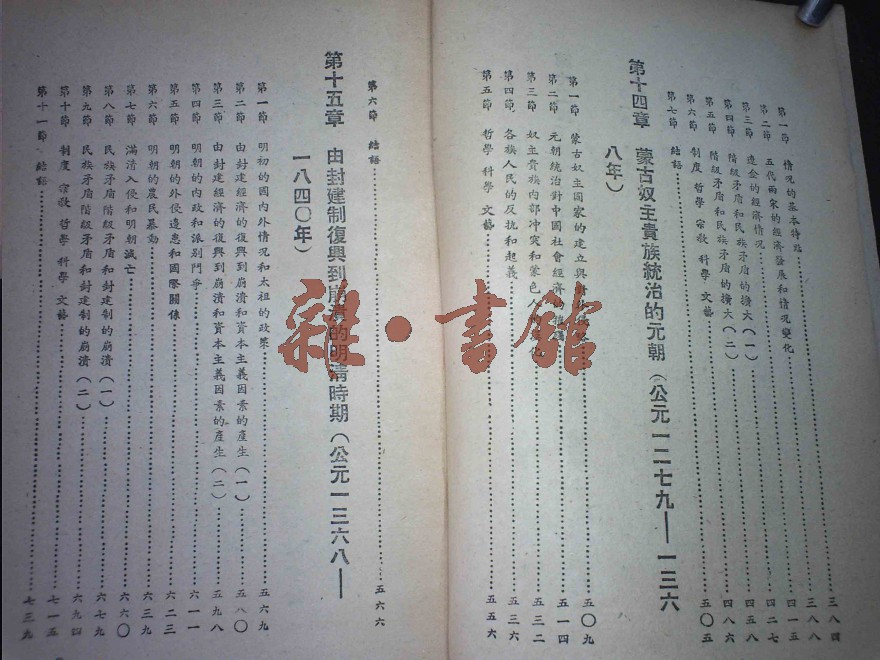 第一節 情况的基本特點 三八四
第二節 五代兩宋的經濟發展和情况變化 三八八
第三節 遼金的經濟情况 四一五
第四節 階級矛盾和民族矛盾的擴大（一） 四二七
第五節 階級矛盾和民族矛盾的擴大（二） 四五八
第六節 制度 哲學 宗教 科學 文藝 四八六
第七節 結語 五〇五
第十四章 蒙古奴主貴族統治的元朝（公元一二七九——一三六
八年）
第一節 蒙古奴主國家的建立與 五〇九
第二節 元朝統治對中國社會經濟的 五一四
第三節 奴主貴族內部冲突和蒙色人 化 五三二
第四節 各族人民的反抗和起義 五三六
第五節 哲學 科學 文藝 五五六
第六節 結語 五六六
第十五章 由封建制復興到崩潰的明清時期（公元一三六八——
一八四〇年）
第一節 明初的國內外情况和太祖的政策 五六九
第二節 由封建經濟的復興到崩潰和資本主義因素的產生（一） 五八〇
第三節 由封建經濟的復興到崩潰和資本主義因素的產生（二） 五九八
第四節 明朝的內政和派別鬥爭 六一一
第五節 明朝的外侵邊患和國際關係 六二三
第六節 明朝的農民暴動 六三九
第七節 滿清入侵和明朝滅亡 六六〇
第八節 民族矛盾階級矛盾和封建制的崩潰（一） 六七九
第九節 民族矛盾階級矛盾和封建制的崩潰（二） 六九四
第十節 制度 宗教 哲學 科學 文藝 七一五
第十一節 結語 七三九
雜·書館